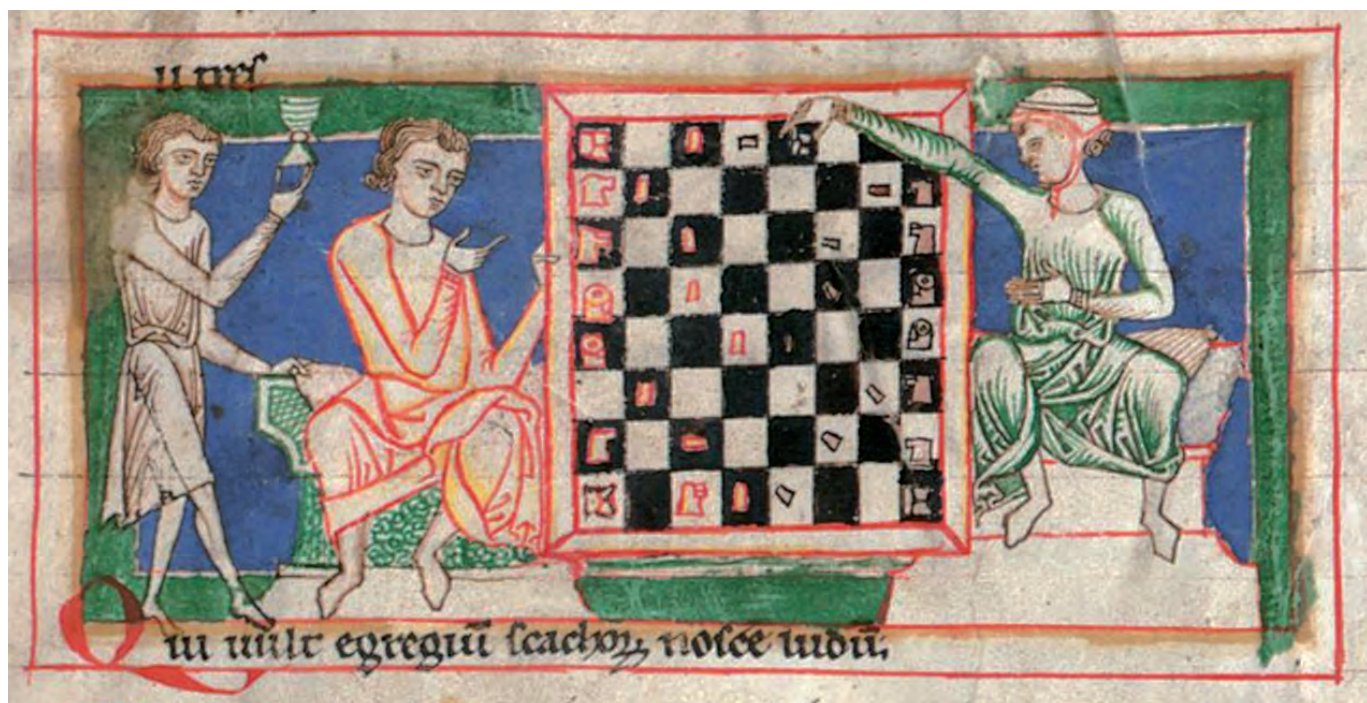 Qui uult egregiū scachoꝝ noscē ludū